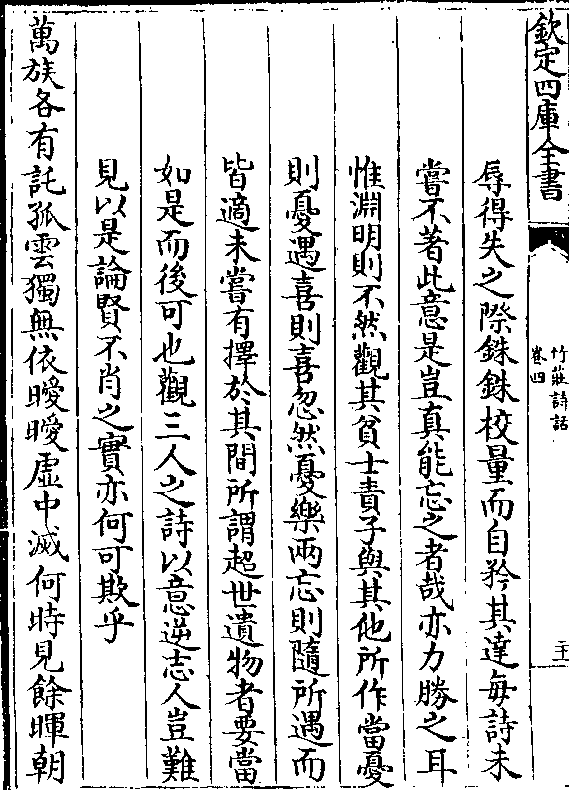 欽定四庫全書
竹莊詩話
卷四
二十
辱得失之際銖銖校量而自矜其達每詩未
嘗不著此意是豈真能忘之者哉亦力勝之耳
惟淵明則不然觀其貧士責子與其他所作當憂
則憂遇喜則喜忽然憂樂兩忘則隨所遇而
皆適未嘗有擇於其間所謂超世遺物者要當
如是而後可也觀三人之詩以意逆志人豈難
見以是論賢不肖之實亦何可欺乎
萬族各有託孤雲獨無依曖曖虛中滅何時見餘暉朝